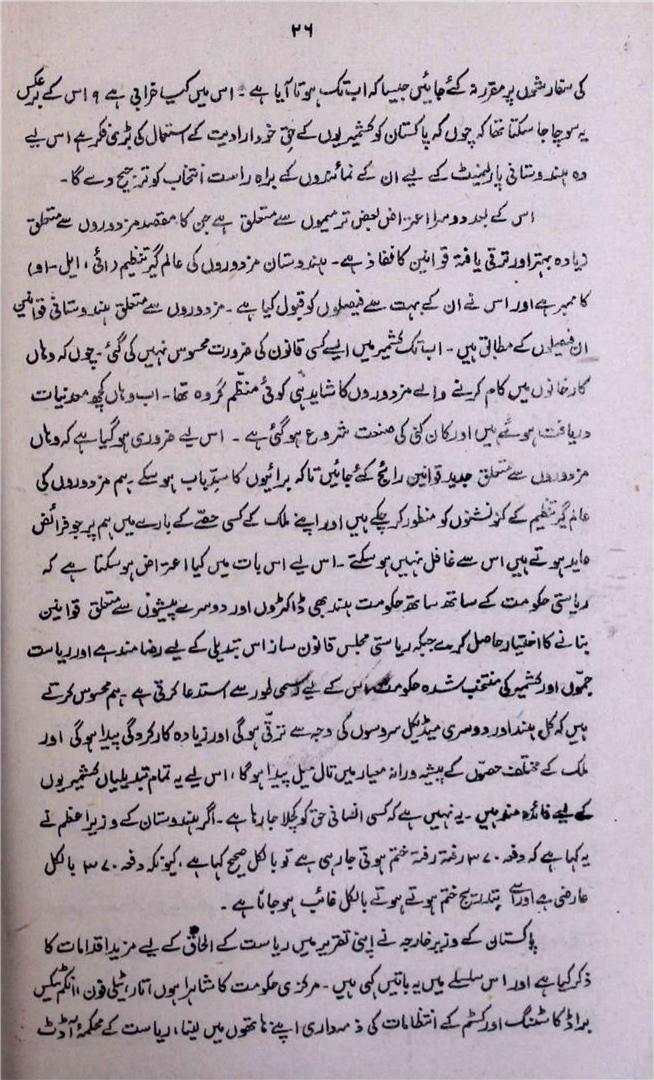 ۲۶
کی سفارشوں پر مقرر نہ کئے جائیں جیسا کہ اب تک ہوتا آیا ہے۔ اس میں کیا خرابی ہے؟ اس کے برعکس
یہ سوچا جا سکتا تھا کہ چوں کہ پاکستان کو کشمیریوں کے حقِ خود ارادیت کے استعمال کی بڑی فکر ہے اس لیے
وہ ہندوستانی پارلیمنٹ کے لیے ان کے نمائندوں کے براہِ راست انتخاب کو ترجیح دے گا۔
اس کے بعد دوسرا اعتراض بعض ترمیموں سے متعلق ہے جن کا مقصد مزدوروں سے متعلق
زیادہ بہتر اور ترقی یافتہ قوانین کا نفاذ ہے۔ ہندوستان مزدوروں کی عالم گیر تنظیم (آئی، ایل۔او)
کا ممبر ہے اور اس نے ان کے بہت سے فیصلوں کو قبول کیا ہے۔ مزدوروں سے متعلق ہندوستانی قوانین
ان فیصلوں کے مطابق ہیں۔ اب تک کشمیر میں ایسے کسی قانون کی ضرورت محسوس نہیں کی گئی۔ چوں کہ وہاں
کارخانوں میں کام کرنے والے مزدوروں کا شاید ہی کوئی منظّم گروہ تھا۔ اب وہاں کچھ معدنیات
دریافت ہوئے ہیں اور کان کنی کی صنعت شروع ہو گئی ہے۔ اس لیے ضروری ہو گیا ہے کہ وہاں
مزدوروں سے متعلق جدید قوانین رائج کئے جائیں تاکہ برائیوں کا سدِّباب ہو سکے۔ ہم مزدوروں کی
عالم گیر تنظیم کے کنونشنوں کو منظور کر چکے ہیں اور اپنے ملک کے کسی حصّے کے بارے میں ہم پر جو فرائض
عاید ہوتے ہیں اس سے غافل نہیں ہو سکتے۔ اس لیے اس بات میں کیا اعتراض ہو سکتا ہے کہ
ریاستی حکومت کے ساتھ ساتھ حکومت ہند بھی ڈاکٹروں اور دوسرے پیشوں سے متعلق قوانین
بنانے کا اختیار حاصل کرے جبکہ ریاستی مجلس قانون ساز اس تبدیلی کے لیے رضامند ہے اور ریاست
جموں اور کشمیر کی منتخب شدہ حکومت اس کے لیے رسمی طور سے استدعا کرتی ہے۔ ہم محسوس کرتے
ہیں کہ کل ہند اور دوسری میڈیکل سروسوں کی وجہ سے ترقی ہوگی اور زیادہ کارکردگی پیدا ہوگی اور
ملک کے مختلف حصّوں کے پیشہ ورانہ معیار میں تال میل پیدا ہوگا، اس لیے یہ تمام تبدیلیاں کشمیریوں
کے لیے فائدہ مند ہیں۔ یہ نہیں ہے کہ کسی انسانی حق کو کچلا جا رہا ہے۔ اگر ہندوستان کے وزیر اعظم نے
یہ کہا ہے کہ دفعہ ۳۷۰ رفتہ رفتہ ختم ہوتی جا رہی ہے تو بالکل صحیح کہا ہے، کیونکہ دفعہ ۳۷۰ بالکل
عارضی ہے اور اسے بتدریج ختم ہوتے ہوتے بالکل غائب ہو جانا ہے۔
پاکستان کے وزیر خارجہ نے اپنی تقریر میں ریاست کے الحاق کے لیے مزید اقدامات کا
ذکر کیا ہے اور اس سلسلے میں یہ باتیں کہی ہیں۔ مرکزی حکومت کا شاہراہوں، تار، ٹیلی فون، انکم ٹیکس
براڈ کاسٹنگ اور کسٹم کے انتظامات کی ذمہ داری اپنے ہاتھوں میں لینا، ریاست کے محکمۂ آڈٹ